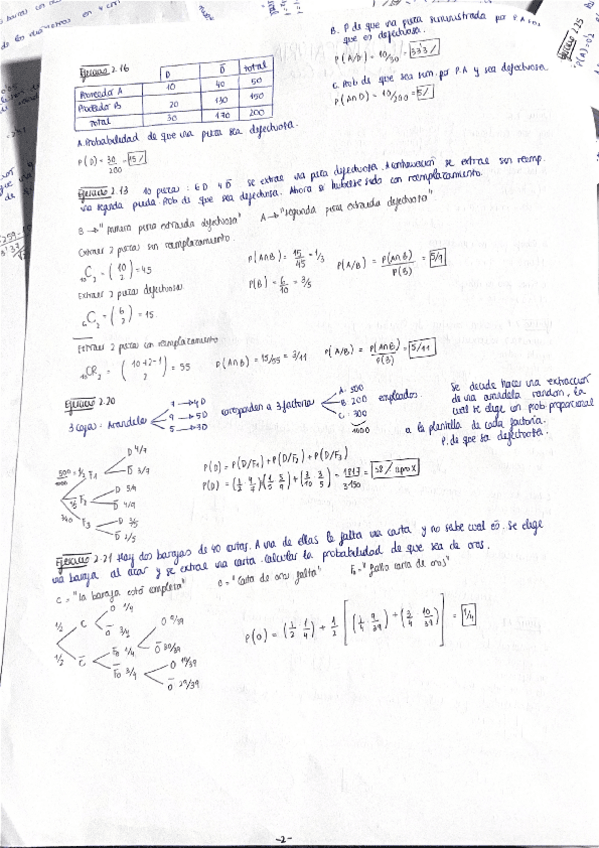 B. P de que una pieza suministrada por P.A sea
que es defectuosa.
P(A/D) = 10/30 = 33'3%
C. Prob de que sea sum. por P.A y sea defectuosa
P(A∩D) = 10/200 = 5%
Ejercicio 2.16
D D̅ total
Proveedor A 10 40 50
Proveedor B 20 130 150
total 30 170 200
A. Probabilidad de que una pieza sea defectuosa.
P(D) = 30/200 = 15%
Ejercicio 2.13 10 piezas : 6D 4D̅ se extrae una pieza defectuosa. A continuación se extrae sin reemp.
una segunda pieza. Prob de que sea defectuosa. Ahora si hubiese sido con reemplazamiento.
B → "primera pieza extraida defectuosa" A → "segunda pieza extraida defectuosa"
Extraer 2 piezas sin reemplazamiento.
₁₀C₂ = (10 2) = 45
P(A∩B) = 15/45 = 1/3
P(A/B) = P(A∩B)/P(B) = 5/9
Extraer 2 piezas defectuosas
₆C₂ = (6 2) = 15
P(B) = 6/10 = 3/5
Extraer 2 piezas con reemplazamiento
₁₀CR₂ = (10+2-1 2) = 55 P(A∩B) = 15/55 = 3/11 P(A/B) = P(A∩B)/P(B) = 5/11
Ejercicio 2.20
3 cajas - Arandelas
7 → 4D
9 → 5D
5 → 3D
corresponden a 3 factorias
A - 500
B - 200
C - 300
1000
empleados.
Se decide hacer una extraccion
de una arandela random, la
cual se elige un prob proporcional
a la plantilla de cada factoria.
P. de que sea defectuosa.
500/1000 = 1/2 F₁ D 4/7
D̅ 3/7
1/5 F₂ D 5/9
D̅ 4/9
3/10 F₃ D 3/5
D̅ 2/5
P(D) = P(D/F₁) + P(D/F₂) + P(D/F₃)
P(D) = (1/2 · 4/7) + (1/5 · 5/9) + (3/10 · 3/5) = 1817/3150 = 58% aprox
Ejercicio 2.21 Hay dos barajas de 40 cartas. A una de ellas le falta una carta y no sabe cual es. Se elige
una baraja al azar y se extrae una carta. Calcular la probabilidad de que sea de oros.
C = "la baraja está completa" O = "Carta de oros falta" F₀ = "falta carta de oros"
1/2 C O 1/4
O̅ 3/4
1/2 C̅ F₀ 1/4 O 9/39
O̅ 30/39
F̅₀ 3/4 O 10/39
O̅ 29/39
P(O) = (1/2 · 1/4) + 1/2 [(1/4 · 9/39) + (3/4 · 10/39)] = 1/4
-2-